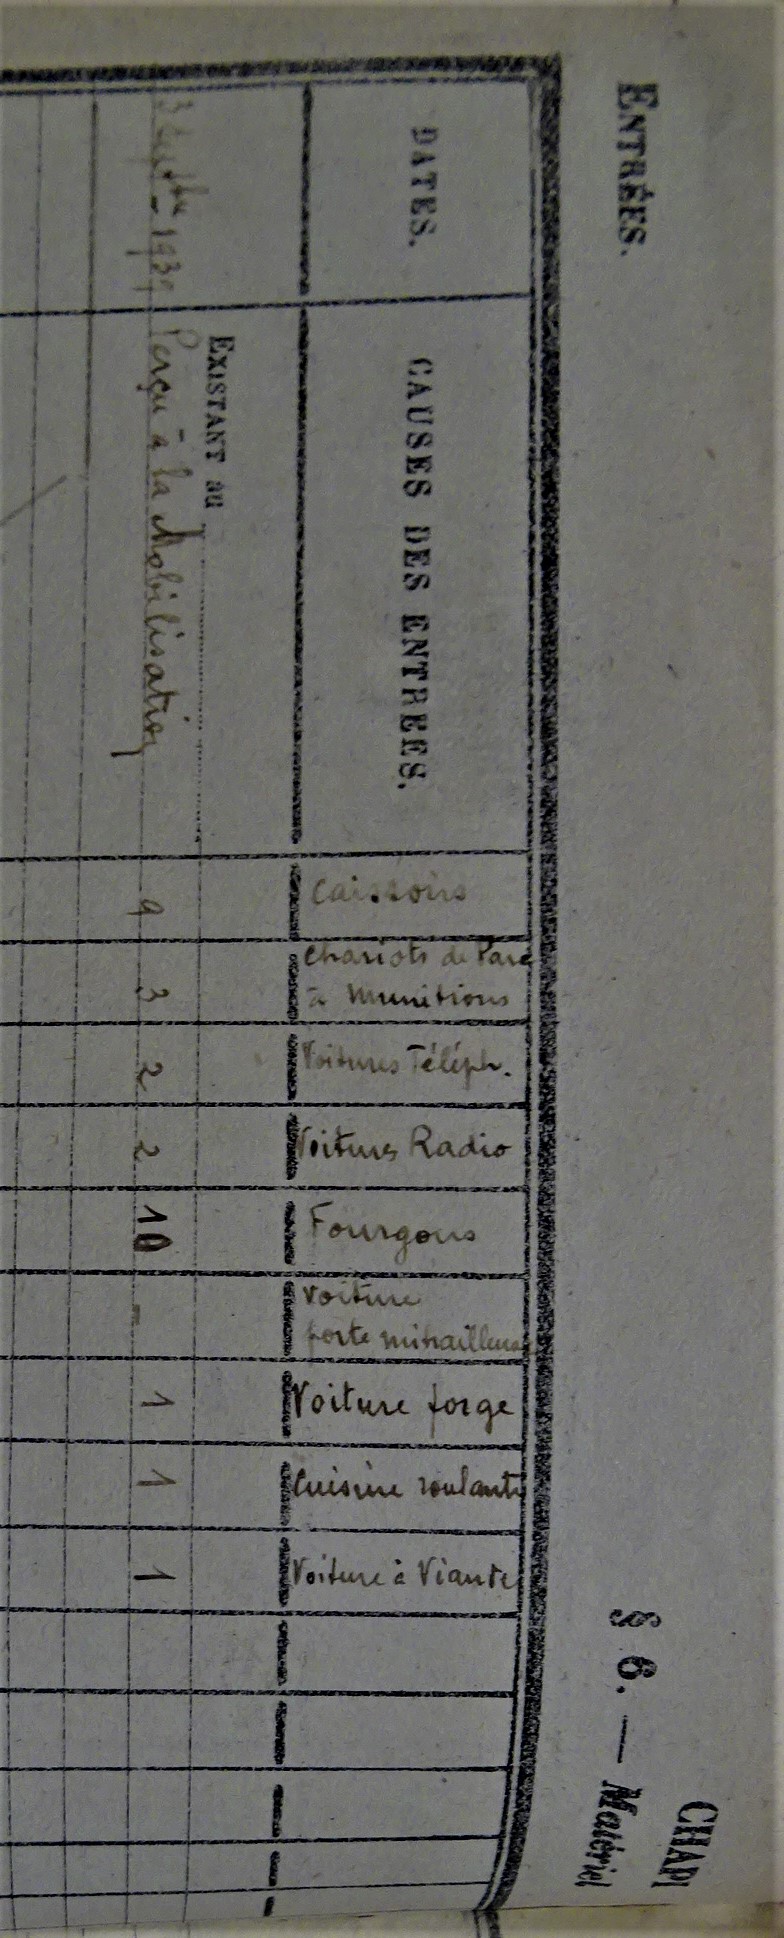 ENTRÉES.
CHAPI
§ 6. — Matériel
DATES.
CAUSES DES ENTREES.
Caissons
Chariots de Parc
à munitions
Voitures Téléph.
Voitures Radio
Fourgons
Voiture
porte mitrailleuses
Voiture forge
Cuisine roulante
Voiture à Viande
EXISTANT au
3 Septbre - 1939 Perçu à la Mobilisation 9 3 2 2 10 - 1 1 1